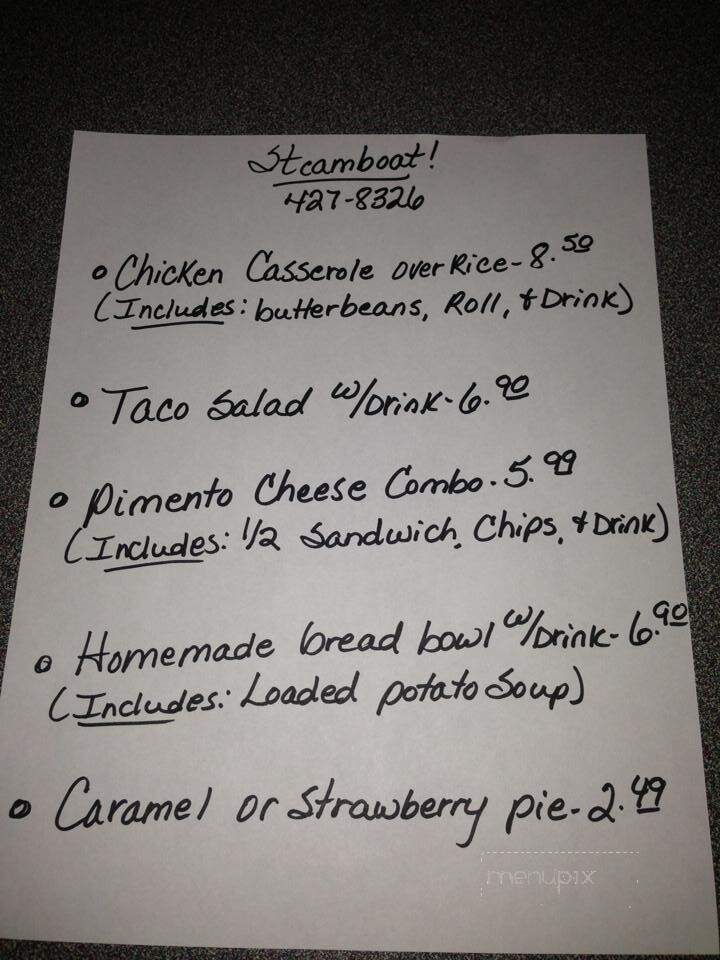 Steamboat!
427-8326
• Chicken Casserole over Rice - 8.50
(Includes: butterbeans, Roll, & Drink)
• Taco Salad w/Drink - 6.90
• Pimento Cheese Combo - 5.99
(Includes: 1/2 Sandwich, Chips, & Drink)
• Homemade bread bowl w/Drink - 6.90
(Includes: Loaded potato Soup)
• Caramel or Strawberry pie - 2.49
menupix